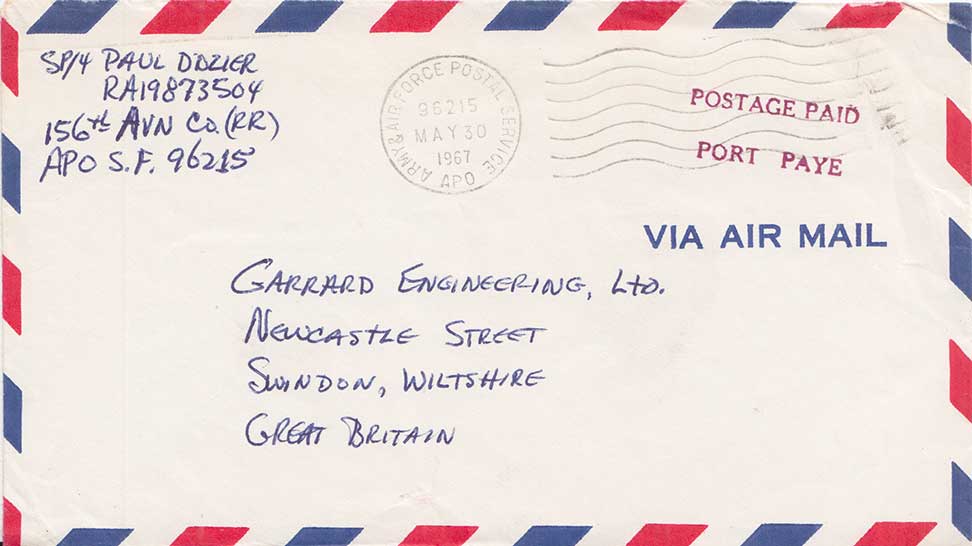 SP/4 PAUL DOZIER
RA19873504
156th AVN CO. (RR)
APO S.F. 96215
ARMY & AIR FORCE POSTAL SERVICE
96215
MAY 30
1967
APO
POSTAGE PAID
PORT PAYE
VIA AIR MAIL
GARRARD ENGINEERING, LTD.
NEWCASTLE STREET
SWINDON, WILTSHIRE
GREAT BRITAIN